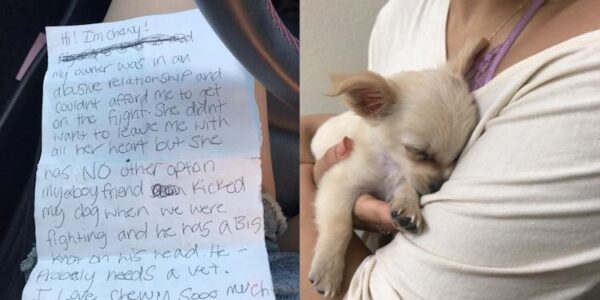 Hi! I'm Chewy!
my owner was in an
abusive relationship and
couldnt afford me to get
on the flight. She didnt
want to leave me with
all her heart but she
has NO other option
my boyfriend kicked
my dog when we were
fighting and he has a Big
knot on his head. He
Probely needs a vet.
I love Chewy Sooo much